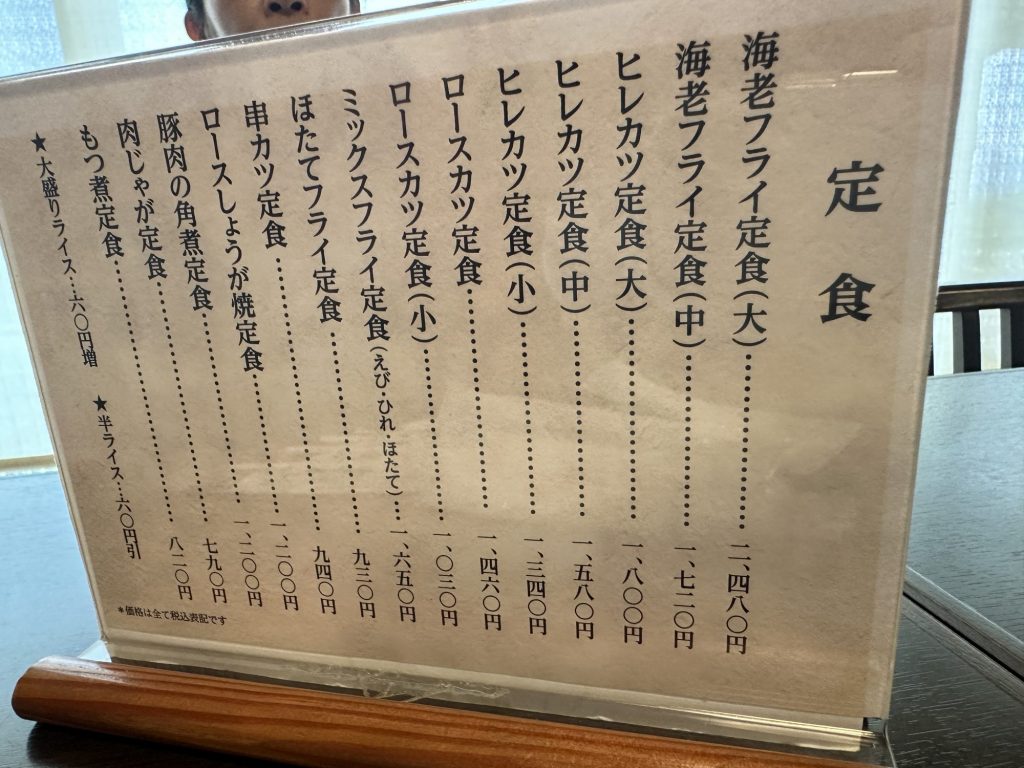 定食
海老フライ定食(大)…………二、四八〇円
海老フライ定食(中)…………一、七二〇円
ヒレカツ定食(大)…………一、八〇〇円
ヒレカツ定食(中)…………一、五八〇円
ヒレカツ定食(小)…………一、三四〇円
ロースカツ定食…………一、四六〇円
ロースカツ定食(小)…………一、〇三〇円
ミックスフライ定食(えび・ひれ・ほたて)…一、六五〇円
ほたてフライ定食…………九三〇円
串カツ定食…………九四〇円
ロースしょうが焼定食…………一、二〇〇円
豚肉の角煮定食…………一、二〇〇円
肉じゃが定食…………七九〇円
もつ煮定食…………八二〇円
★大盛りライス…六〇円増 ★半ライス…六〇円引
*価格は全て税込表記です